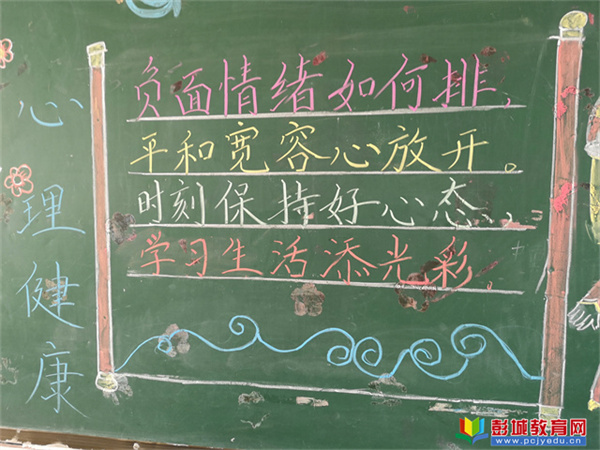 心理健康
负面情绪如何排,
平和宽容心放开。
时刻保持好心态,
学习生活添光彩。
彭城教育网
www.pcjyedu.cn